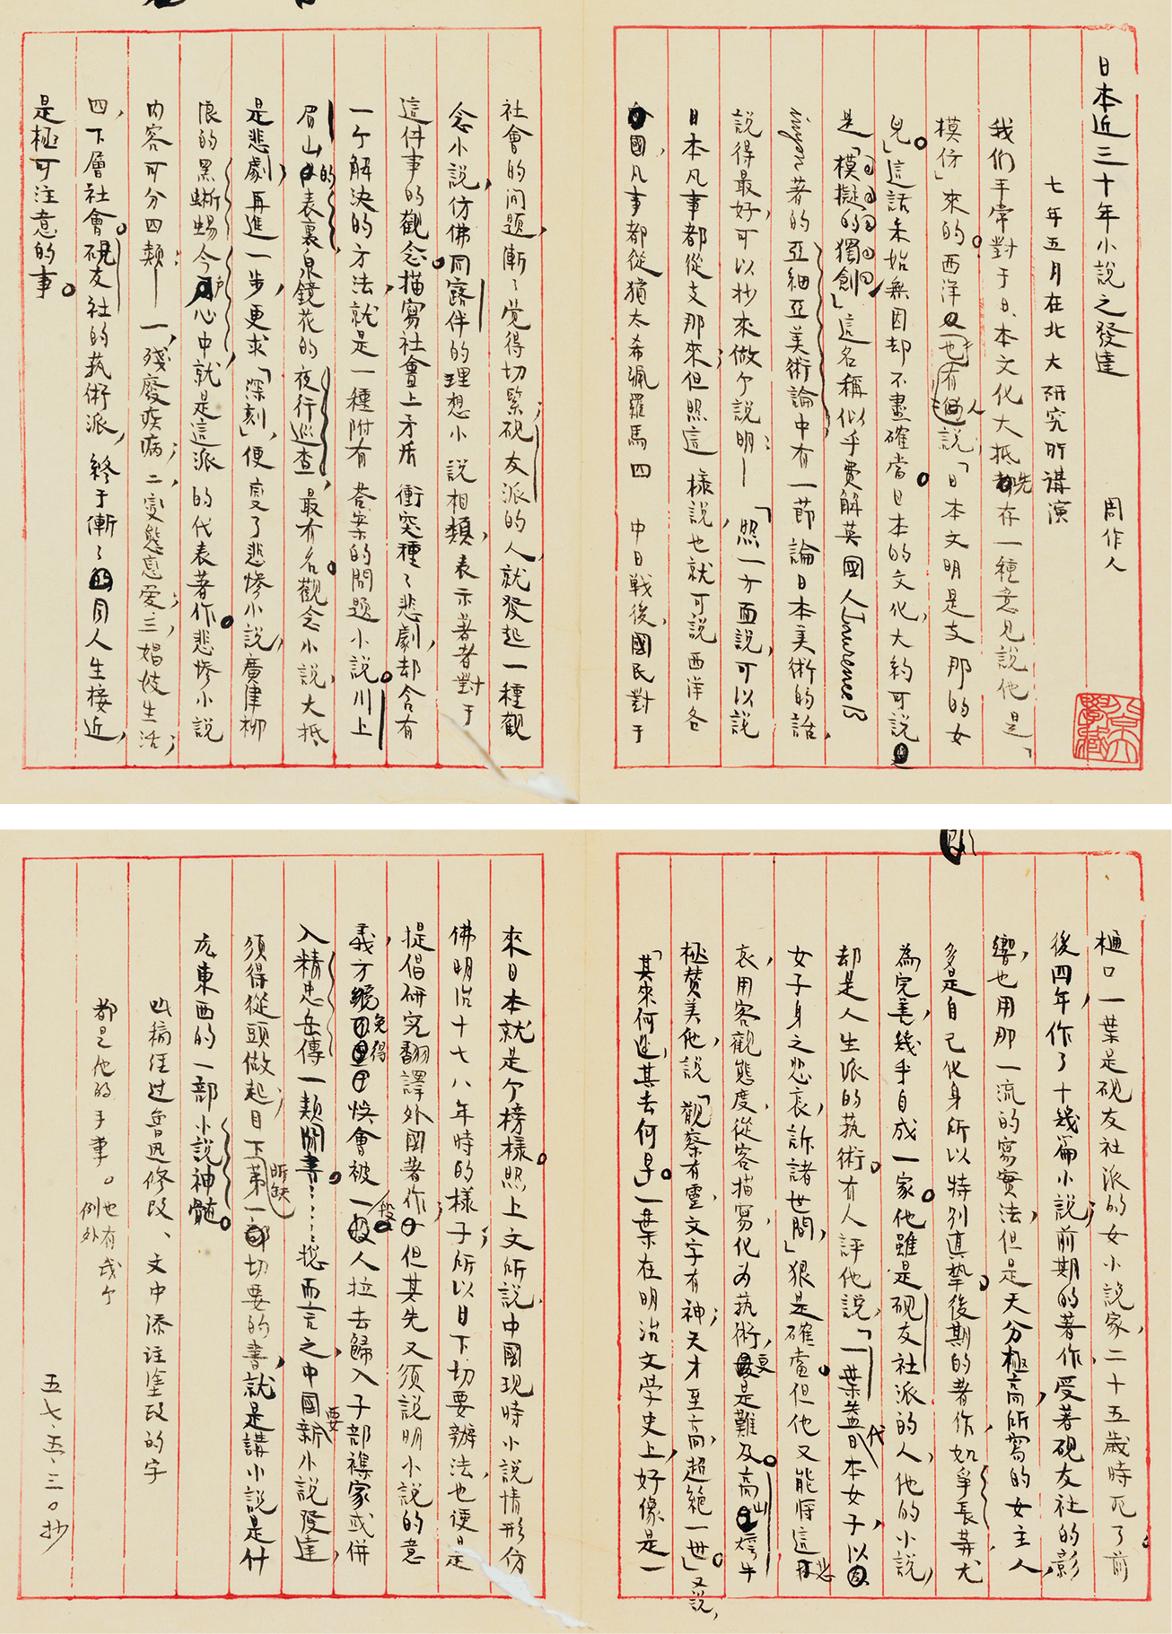 日本近三十年小說之發達　周作人
七年五月在北大研究所講演
我们平常對于日本文化大抵先存一種意見說他是「
模仿」來的。西洋也有人說「日本文明是支那的女
兒」。這話未始無因却不盡確當。日本的文化大約可說
是「模擬的獨創」這名稱似乎費解英國人Laurence B
inyon著的亞細亞美術論中有一節論日本美術的話,
說得最好,可以抄來做个說明:—「照一方面說,可以說
日本凡事都從支那來;但照這樣說也就可說西洋各
國凡事都從猶太希臘羅馬四　中日戰後,國民對于
社會的问題,漸々覚得切緊;硯友派的人,就發起一種觀
念小說,仿佛同露伴的理想小說相類,表示著者對于
這件事的觀念。描寫社會上矛盾衝突種々悲劇,却含有
一个解决的方法,就是一種附有答案的問題小說。川上
眉山的表裏,泉鏡花的夜行巡查,最有名。觀念小說,大抵
是悲劇;再進一步,更求「深刻」,便变了悲惨小說,廣津柳
浪的黑蜥蜴今户心中,就是這派的代表著作。悲惨小說
内容可分四類:—一,殘廢疾病;二,变態恋爱;三,娼妓生活;
四,下層社會。硯友社的执術派,終于漸々同人生接近,
是極可注意的事。
樋口一葉是硯友社派的女小說家,二十五歲時死了。前
後四年,作了十幾篇小說;前期的著作,受著硯友社的影
響,也用那一流的寫實法,但是天分極高,所寫的女主人,
多是自己化身,所以特别真挚。後期的著作,如爭長等尤
為完美,幾乎自成一家。他雖是硯友社派的人,他的小說,
却是人生派的执術。有人評他說,「一葉盖代日本女子,以
女子身之悲哀,訴諸世間」狠是確當。但他又能将這悲
哀,用客觀態度,從容描寫,化为执術,更是難及。高山樗牛
極赞美他,說「觀察有靈,文字有神;天才至高,超絶一世」。又說,
「其來何迟,其去何早。」一葉在明治文学史上,好像是一
來日本就是个榜樣。照上文所說,中國現時小說情形,仿
佛明治十七八年時的樣子;所以目下切要辦法,也便是
提倡研究翻譯外國著作;但其先又須說明小說的意
義,方免得悞會,被一般人拉去歸入子部襍家,或併
入精忠岳傳一類閒書。……總而言之,中國要新小說發達,
須得從頭做起;目下所缺第一切要的書,就是講小說是什
庅東西的一部小說神髄。
此稿经过魯迅修改、文中添注塗改的字
都是他的手筆。也有或个例外
五七.五.三〇抄